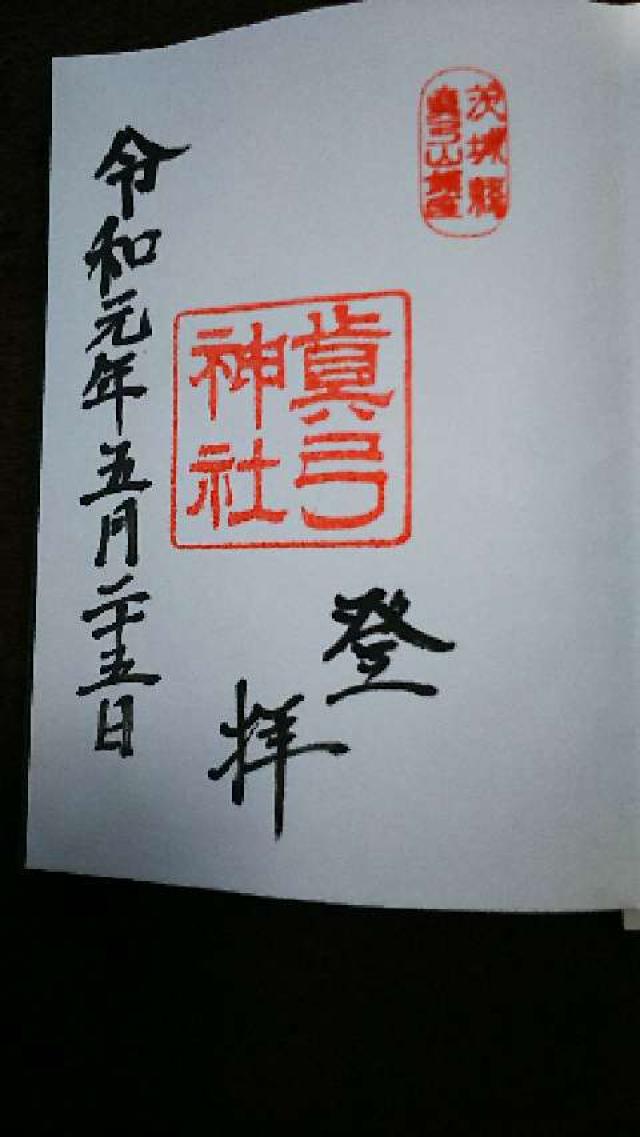 茨城縣
眞弓山鎮座
眞弓
神社
登
拝
令和元年五月二十五日